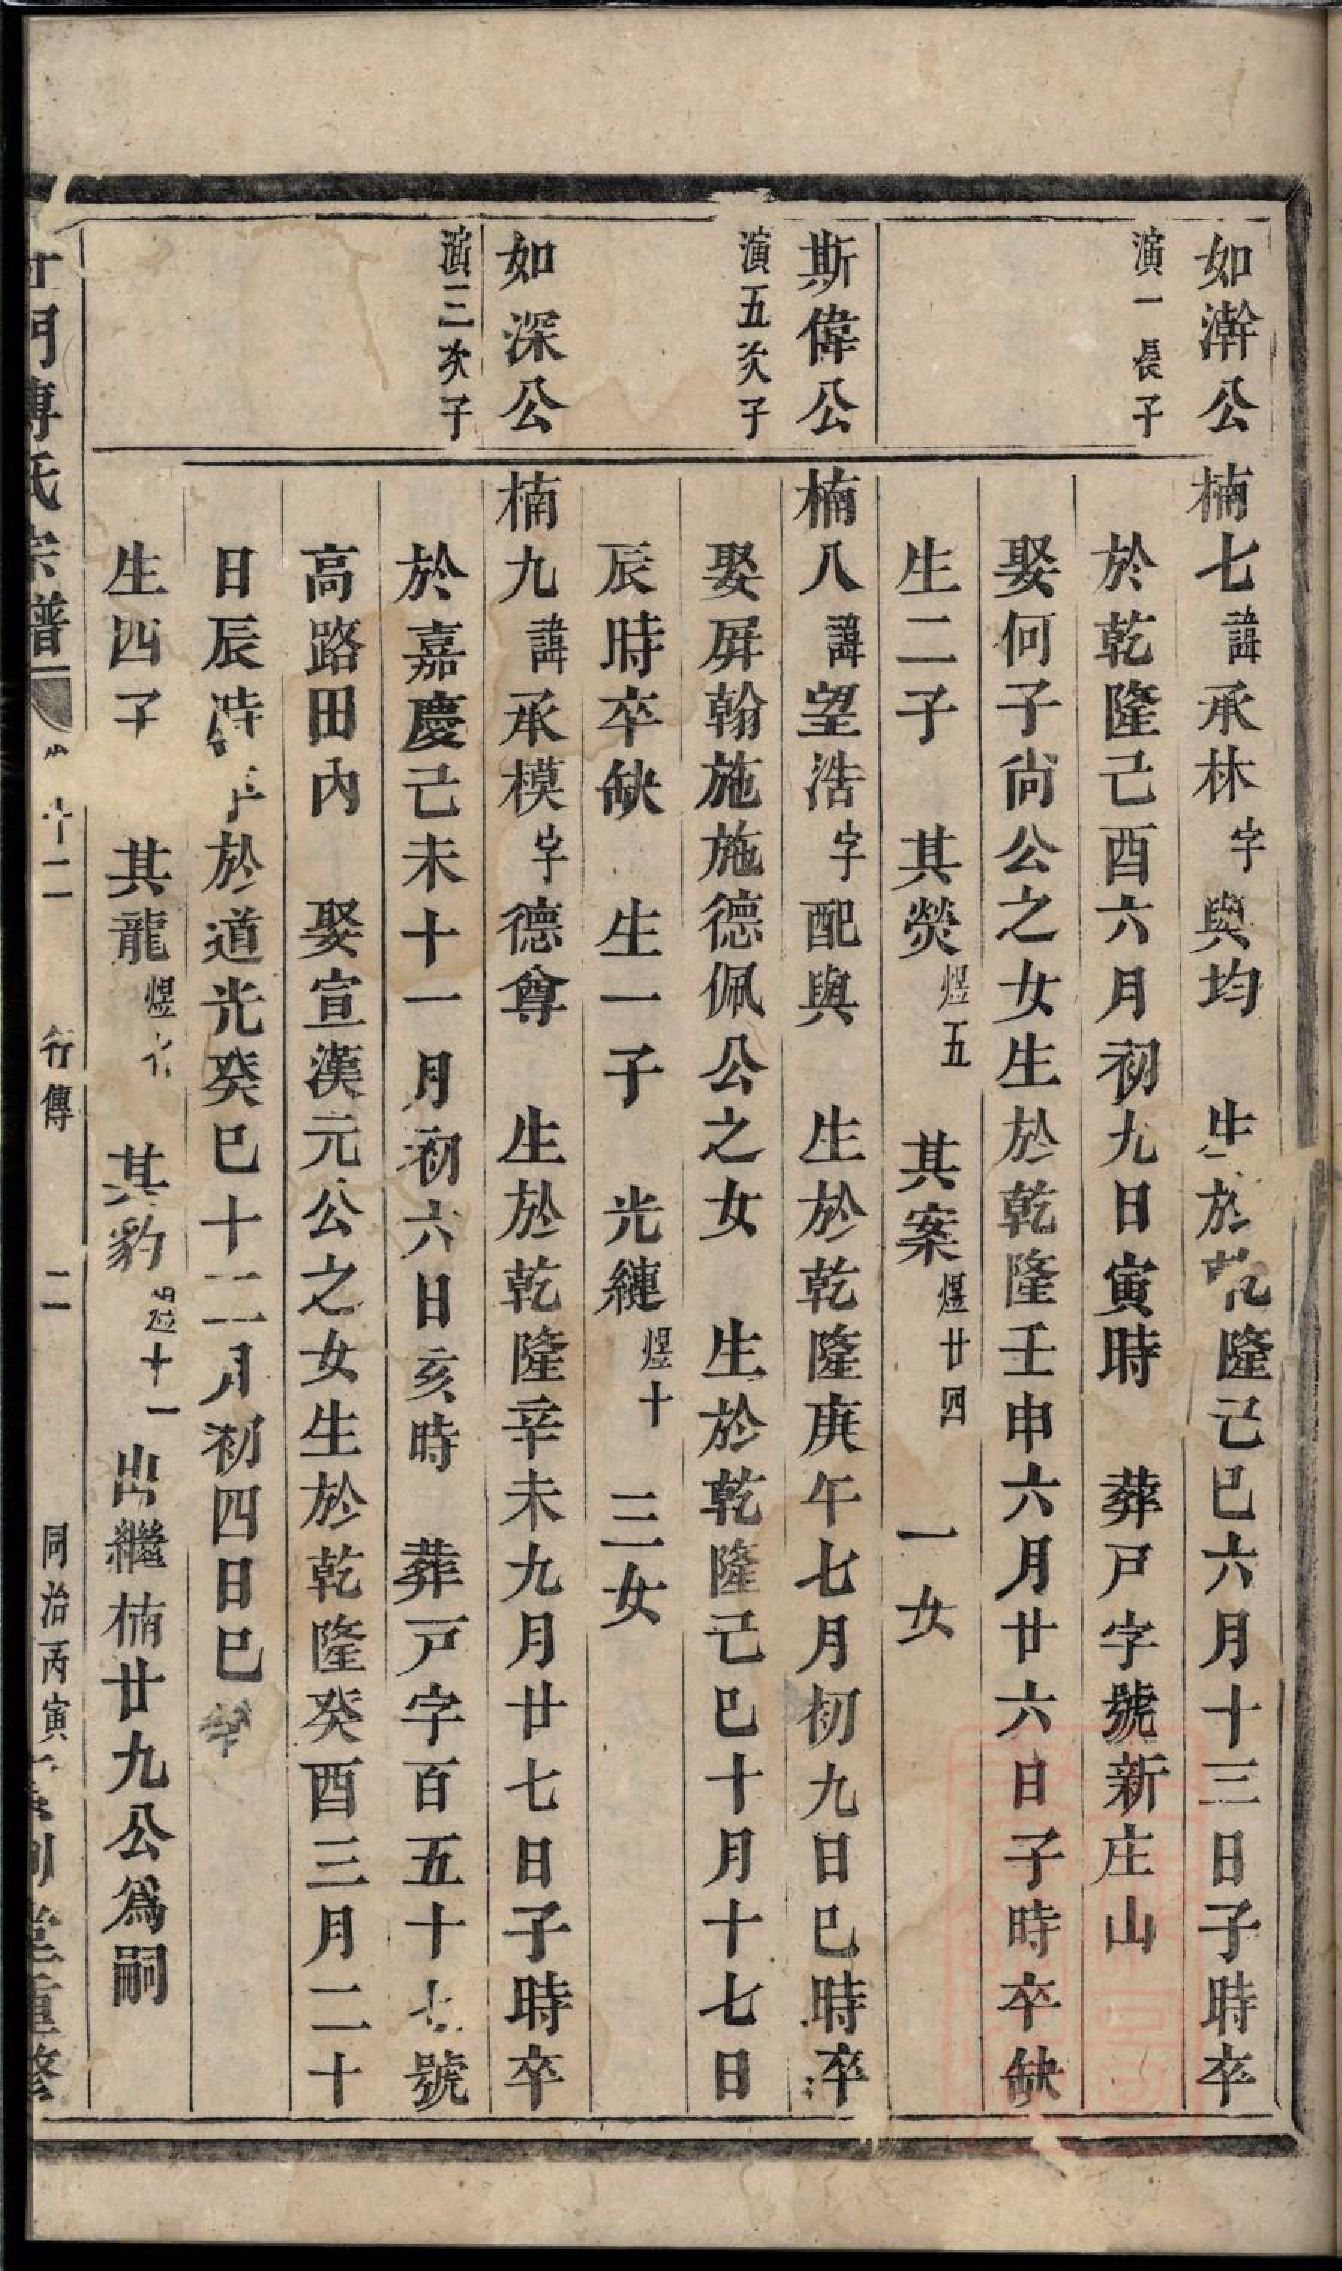 如澣公
演一長子
楠七諱承林字與均 生於乾隆己巳六月十三日子時卒
於乾隆己酉六月初九日寅時 葬戸字號新庄山
娶何子尙公之女生於乾隆壬申六月廿六日子時卒缺
生二子 其熒煜五 其案煜廿四 一女
斯偉公
演五次子
楠八諱望浩字配與 生於乾隆庚午七月初九日巳時卒
娶屏翰施施德佩公之女 生於乾隆己巳十月十七日
辰時卒缺 生一子 光縺煜十 三女
如深公
演三次子
楠九諱承模字德尊 生於乾隆辛未九月廿七日子時卒
於嘉慶己未十一月初六日亥時 葬戸字百五十七號
高路田內 娶宣漢元公之女生於乾隆癸酉三月二十
日辰時 於道光癸巳十二月初四日巳
生四子 其龍煜 其豹 十一出繼楠廿九公爲嗣
門傅氏宗譜 十二 行傳 二 同治丙寅 堂重修